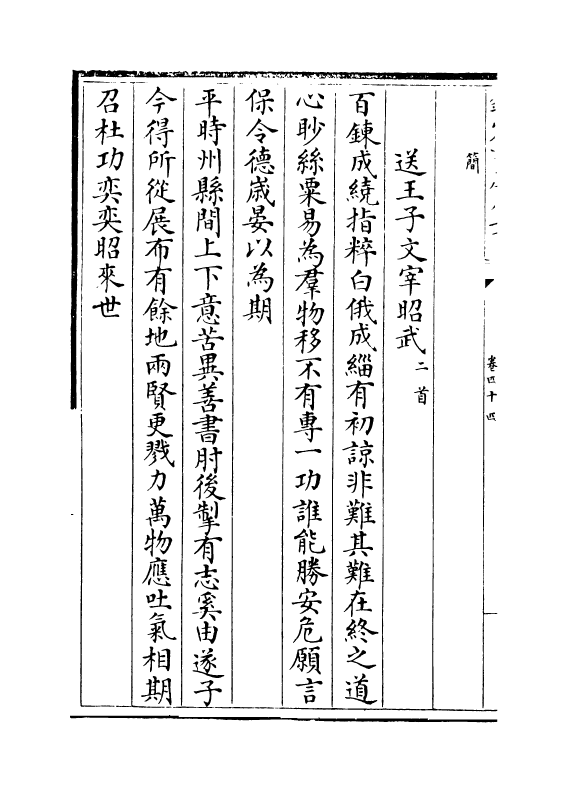 卷四十四
簡
送王子文宰昭武二首
百鍊成繞指粹白俄成緇有初諒非難其難在終之道
心眇絲粟易為羣物移不有專一功誰能勝安危願言
保令德歳晏以為期
平時州縣間上下意苦異善書肘後掣有志奚由遂子
今得所從展布有餘地兩賢更戮力萬物應吐氣相期
召杜功奕奕昭來世